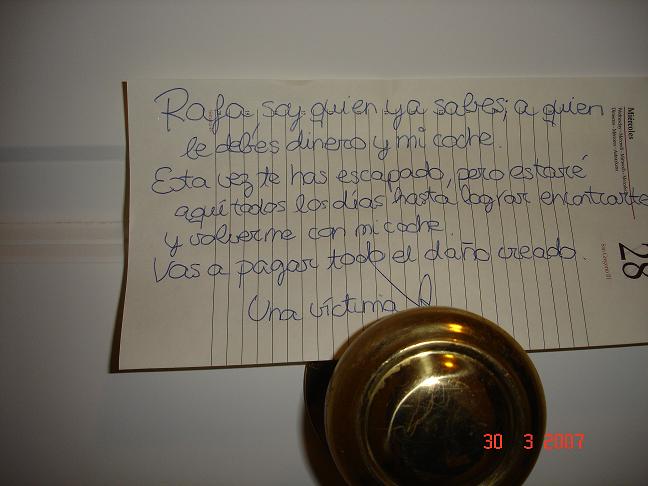 Rafa, soy quien ya sabes; a quien
le debes dinero y mi coche.
Esta vez te has escapado, pero estaré
aquí todos los días hasta lograr encontrarte
y volverme con mi coche.
Vas a pagar todo el daño creado.
Una víctima
Miércoles
28
30 3 2007